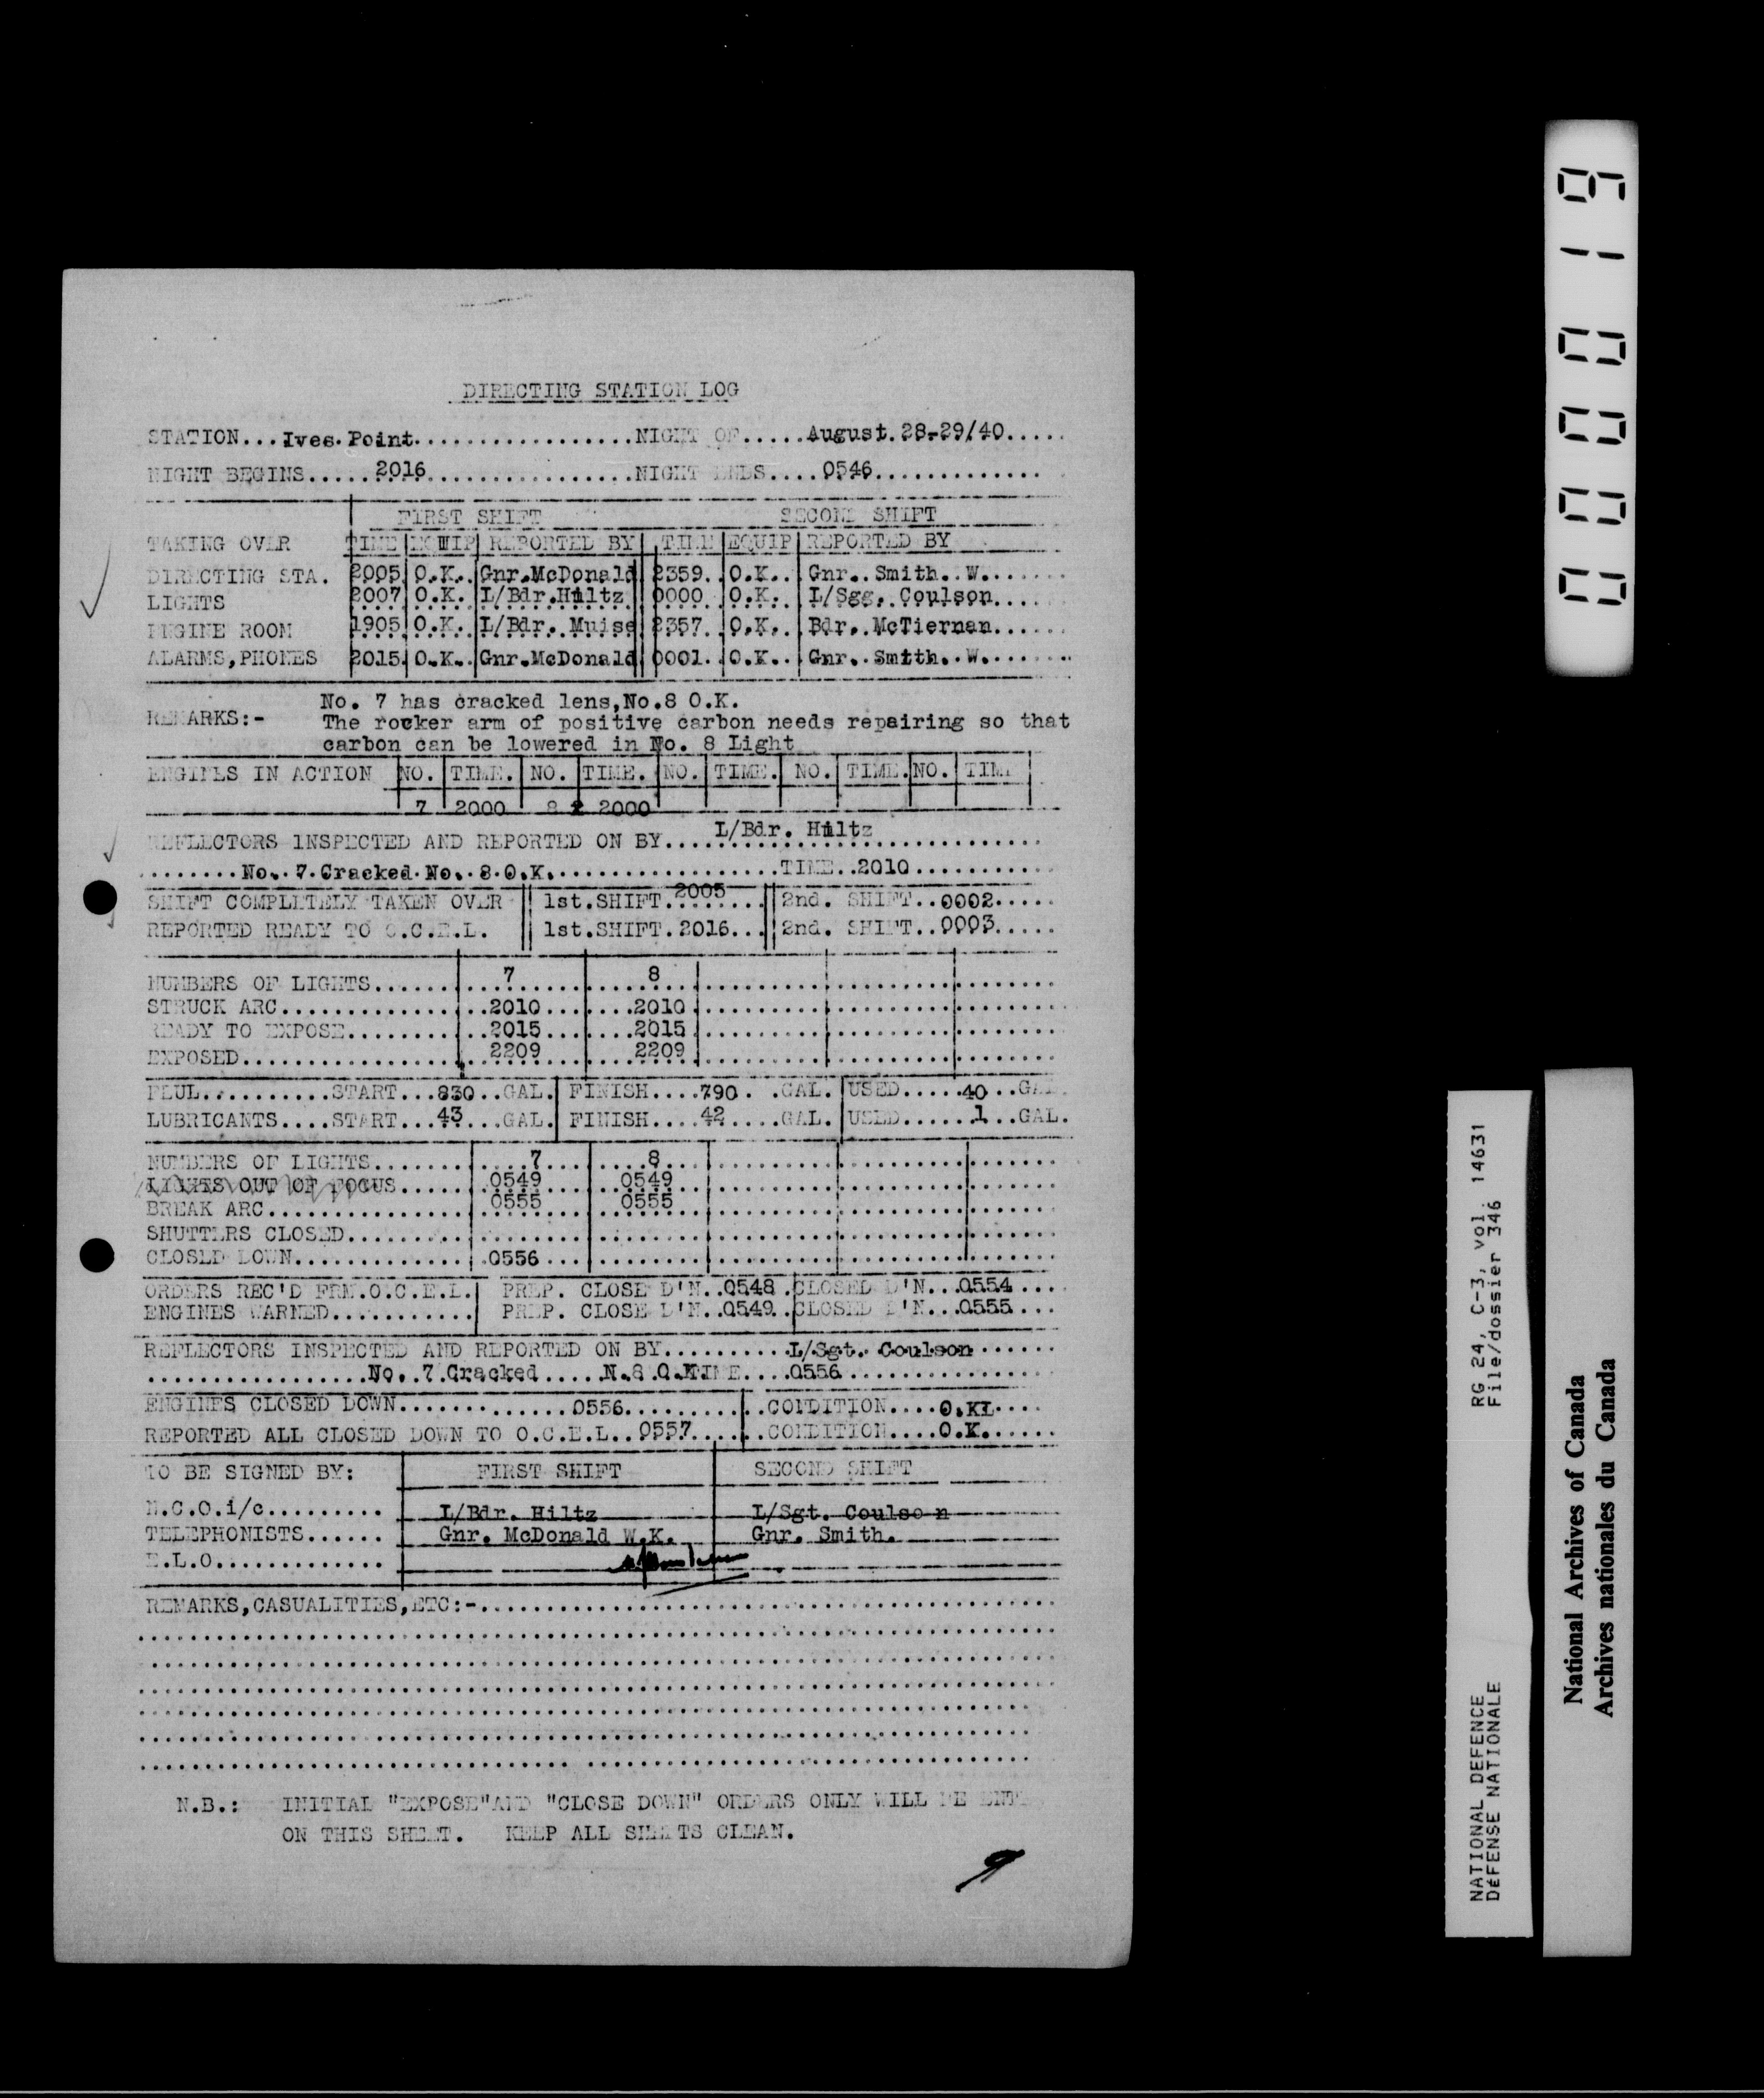 DIRECTING STATION LOG
STATION...Ives.Point.................NIGHT OF.....August.28-29/40.....
NIGHT BEGINS.....2016................NIGHT ENDS....0546.............
FIRST SHIFT SECOND SHIFT
TAKING OVER TIME EQUIP REPORTED BY TIME EQUIP REPORTED BY
DIRECTING STA. 2005 O.K. Gnr.McDonald 2359. O.K.. Gnr..Smith..W.......
LIGHTS 2007 O.K. L/Bdr.Hiltz 0000 O.K. L/Sgg. Coulson....
ENGINE ROOM 1905 O.K. L/Bdr. Muise 2357. O.K.. Bdr..McTiernan......
ALARMS,PHONES 2015 O.K.. Gnr.McDonald 0001. O.K... Gnr..Smith..W.......
No. 7 has cracked lens,No.8 O.K.
REMARKS:- The rocker arm of positive carbon needs repairing so that
carbon can be lowered in No. 8 Light
ENGINES IN ACTION NO. TIME. NO. TIME. NO. TIME. NO. TIME. NO. TIME
7 2000 8 2 2000
REFLECTORS INSPECTED AND REPORTED ON BY....L/Bdr. Hiltz..............
.......No..7.Cracked.No..8.O.K..................TIME..2010...........
SHIFT COMPLETELY TAKEN OVER 1st.SHIFT.2005.... 2nd. SHIFT..0002.....
REPORTED READY TO O.C.E.L. 1st.SHIFT.2016... 2nd. SHIFT..0003.....
NUMBERS OF LIGHTS...... 7 8
STRUCK ARC..............2010.........2010
READY TO EXPOSE.........2015.........2015
EXPOSED.................2209.........2209
FUEL..........START...830..GAL. FINISH....790. .GAL. USED.....40..GAL
LUBRICANTS....START...43...GAL. FINISH....42....GAL. USED......1..GAL.
NUMBERS OF LIGHTS...........7........8
LIGHTS OUT OF FOCUS......0549......0549
BREAK ARC................0555......0555
SHUTTERS CLOSED.........
CLOSED DOWN..............0556....
ORDERS REC'D FRM.O.C.E.L. PREP. CLOSE D'N..0548.CLOSED D'N...0554....
ENGINES WARNED........... PREP. CLOSE D'N..0549..CLOSED D'N...0555...
REFLECTORS INSPECTED AND REPORTED ON BY..........L/Sgt. Coulson......
.................No..7.Cracked.....N.8 O.K.TIME....0556................
ENGINES CLOSED DOWN.............0556...........CONDITION....O.KL....
REPORTED ALL CLOSED DOWN TO O.C.E.L..0557......CONDITION....O.K......
TO BE SIGNED BY: FIRST SHIFT SECOND SHIFT
N.C.O.i/c......... L/Bdr. Hiltz L/Sgt. Coulso n
TELEPHONISTS...... Gnr. McDonald W.K. Gnr. Smith.
E.L.O.............
REMARKS,CASUALITIES,ETC:-............................................
N.B.: INITIAL "EXPOSE"AND "CLOSE DOWN" ORDERS ONLY WILL BE ENT
ON THIS SHEET. KEEP ALL SHEETS CLEAN.
9
000019
RG 24, C-3, vol. 14631
File/dossier 346
NATIONAL DEFENCE
DÉFENSE NATIONALE
National Archives of Canada
Archives nationales du Canada